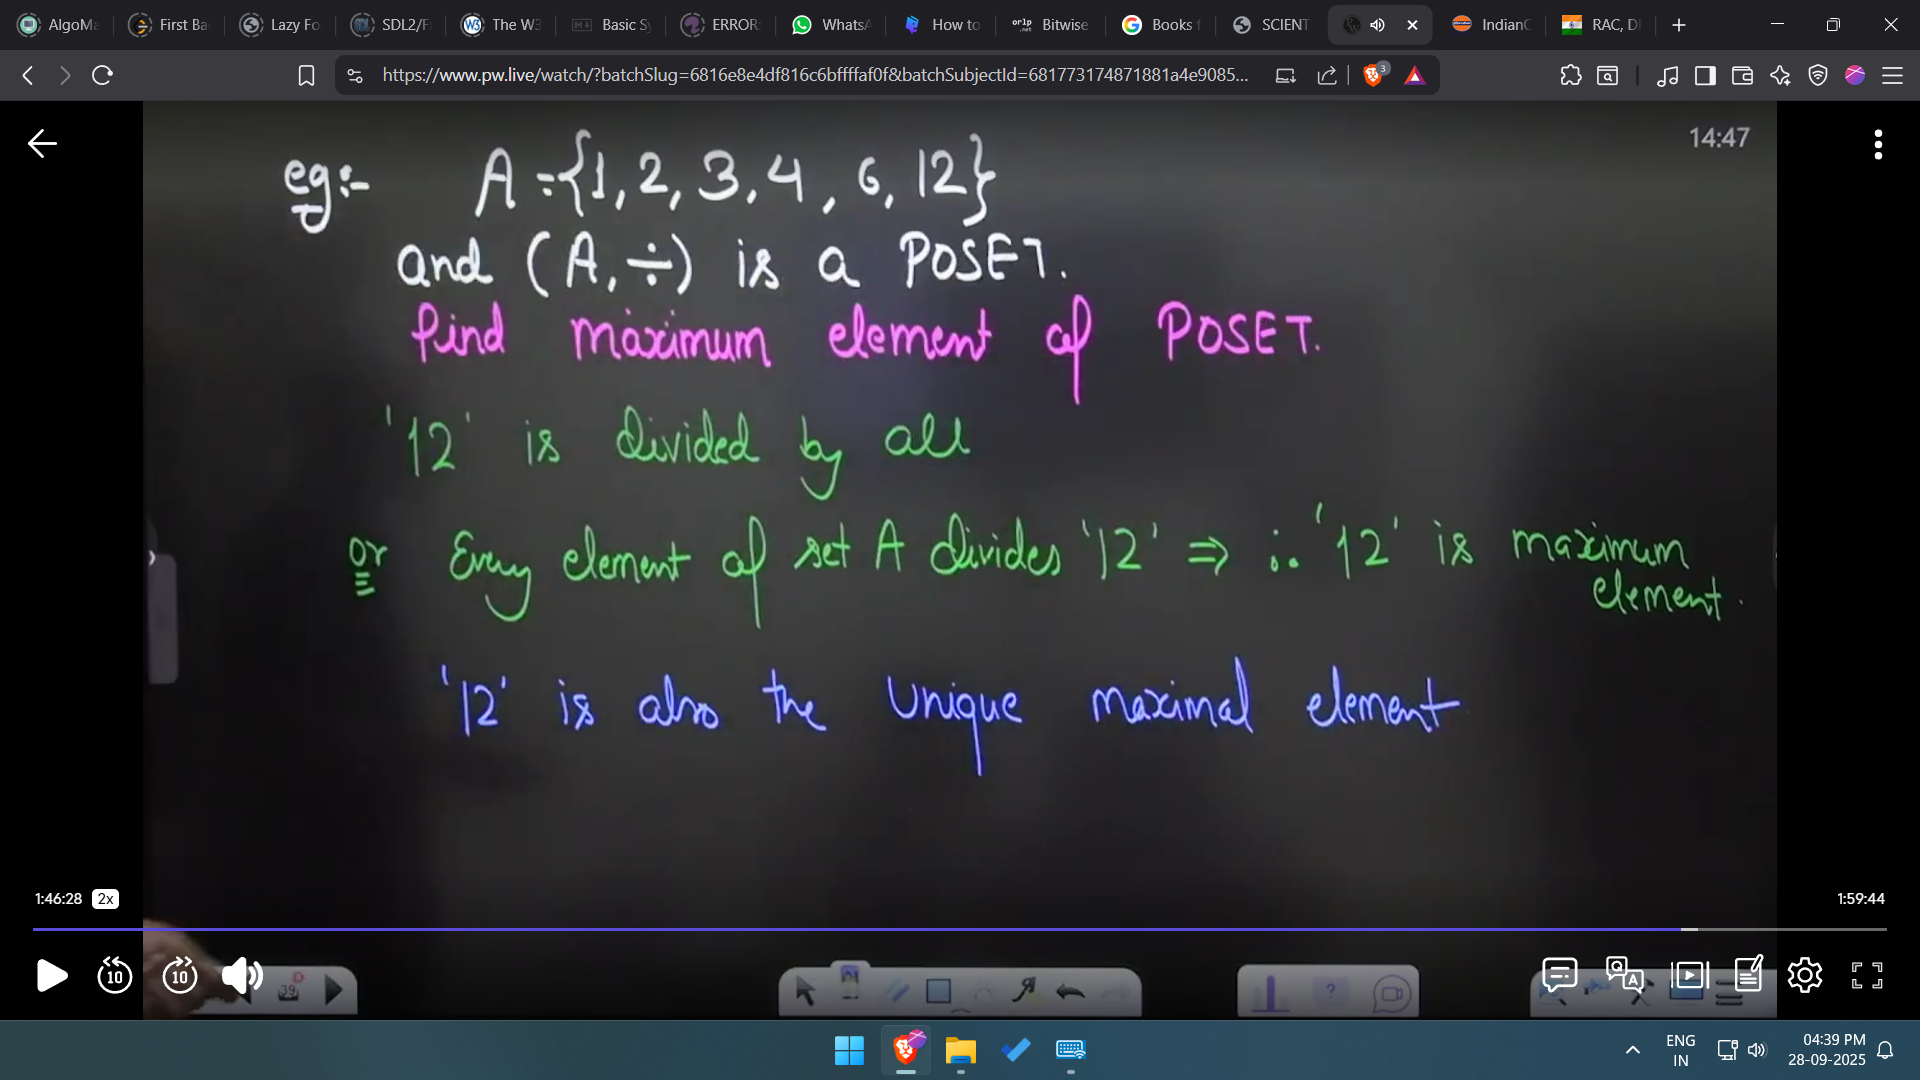 AlgoMa
First Ba
Lazy Fo
SDL2/Fi
The W3
Basic Sy
ERROR:
WhatsA
How to
Bitwise
Books f
SCIENT
IndianC
RAC, DI
https://www.pw.live/watch/?batchSlug=6816e8e4df816c6bffffaf0f&batchSubjectId=681773174871881a4e9085...
3
14:47
eg:- A = {1, 2, 3, 4, 6, 12}
and (A, ÷) is a POSET.
find maximum element of POSET.
'12' is divided by all
or Every element of set A divides '12' ⇒ ∴ '12' is maximum
element.
'12' is also the unique maximal element
1:46:28 2x
1:59:44
10
10
39
ENG
IN
04:39 PM
28-09-2025